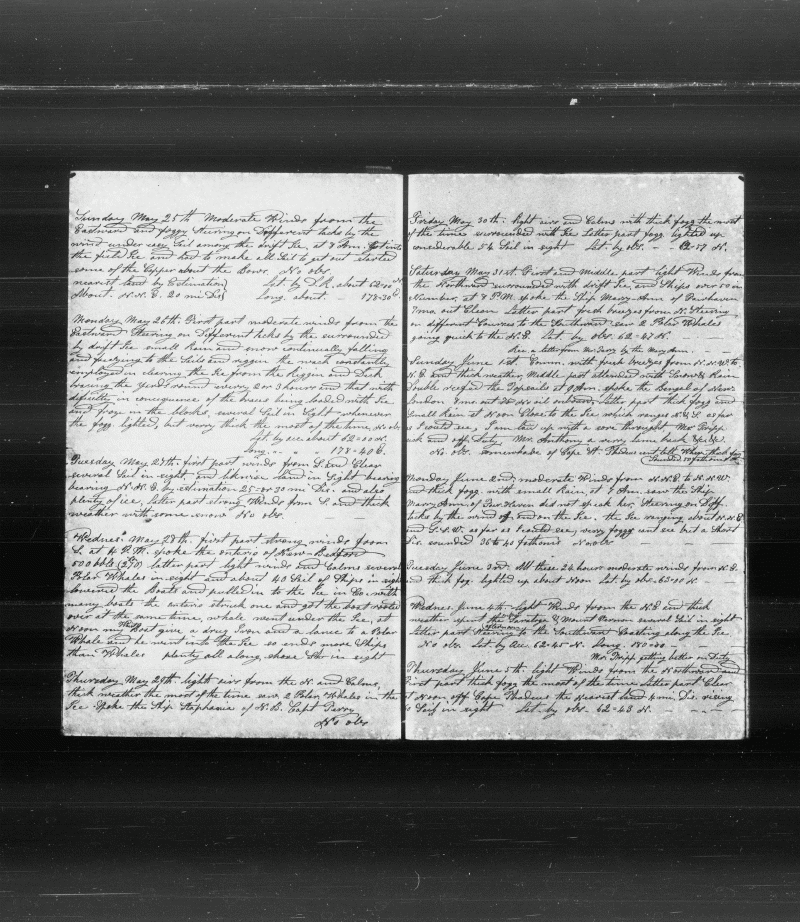 Sunday May 25th Moderate Winds from the
Eastward and foggy Steering on Different tacks by the
wind under easy Sail among the drift Ice at 8 Am. Got into
the field Ice and had to make all Sail to get out started
some of the Copper about the Bows. No obs
nearest land by Estimation Lat by D.R. about 62=00 N
About N.N.E. 20 mi Dis Long. about - 178=30 E.
Monday May 26th. First part moderate winds from the
Eastward Steering on Different tacks by the surrounded
by drift Ice small Rain and snow continually falling
and freezing to the Sails and riggin the wach constantly
employed in clearing the Ice from the Riggin and Deck
bracing the yards round every 2 or 3 hours and that with
difficulty in concequence of the braces being loaded with Ice
and froze in the blocks, several Sail in Sight whenever
the fogg lighted but very thick the most of the time, No obs
Lat by acc about 62=00 N.
Long - - " 178=40 E.
Tuesday May 27th. first part winds from S. End Clear
several Sail in sight and likewise land in Sight bearing
bearing N.N.E. by estimation 25 or 30 mi Dis. and also
plenty of ice, latter part strong Winds from S. and thick
weather with some snow No obs
Wednes. May 28th. first part strong winds from
S. at 4 P.M. spoke the onterio of New-Bedford
500 bbls (250) latter part light winds and Calms several
Polar Whales in sight and about 43 Sail of Ships in sigh
lowered the Boats and pulled in to the Ice in Co. with
many boats the onterio struck one and got the boat rooled
over at the same time, whale went under the Ice, at
Noon my Boat give a drug Iron and a lance to a Polar
Whale and he went into the Ice so ends more Ships
than Whales plenty all along shore Ice in sight
Thursday May 29th. light airs from the N. and Calms,
thick weather the most of the time saw 2 Polar Whales in the
Ice Spoke the Ship Stephania of N.B. Capt Terry
No obs
Firday May 30th. light airs and Calms with thick fogg the most
of the times surrounded with Ice Latter part fogg lighted up
considerable 54 Sail in sight Lat by obs. - 62-37 N.
Saturday May 31st. First and Middle part light Winds from
the Northward surrounded with drift Ice, and Ships over 50 in
Number, at 8 P.M. spoke the Ship Mary Ann of Fairhaven
9 mo. out Clean Latter part fresh breezes from N. Steering
on different Courses to the Southward saw 2 Polar Whales
going quick to the N.E. Lat by obs. 62=47 N.
Rec. a letter from by the Mary Ann.
Sunday June 1st. Comm. with fresh breezes from N.N.W. to
N.E. and thick weather, Middle part attended with Snow & Rain
Double reefed the Topsails at 9 Am. spoke the Bengal of New
London 8 mo out oil onboard, latter part thick fogg and
Small Rain at Noon Close to the Ice which ranges N & S. as far
as I could see, I am laid up with a sore throught Mr Tripp
sick and off duty, Mr. Anthony a very lame back &c &c.
No obs. somewhere of Cape St. Thadeus
Monday June 2nd, moderate Winds from N.N.E. to N.N.W.
and thick fogg with small Rain, at 9 Am. saw the Ship
Mary Ann, of Fair Haven did not speak her, Steering on Diff.
tacks by the wind off and on the Ice, the Ice ranging about N.N.E
and S.S.W. as far as I could see, very foggy cant see but a Short
Dis. sounded 36 to 40 fathoms No obs
Tuesday June 3rd. All these 24 hours moderate winds from N.E.
and thick fog. lighted up about Noon Lat by obs. 63=00 N.
Wednes. June 4th. Light Winds from the N.E. and thick
weather spoke the Saratoga & Mount Vernon several Sail in sight
Latter part Steering to the Southward Coasting along the Ice
No obs. Lat by Acc. 62=45 N. Long. 180=00
Mr Tripp getting better on duty
Thursday June 5th. light Winds from the Northward and
First part thick fogg the most of the time Latter part Clear
at Noon off Cape Thadeus the nearest land 4 mi. Dis.
Sail in sight Lat by obs. 62-43 N.